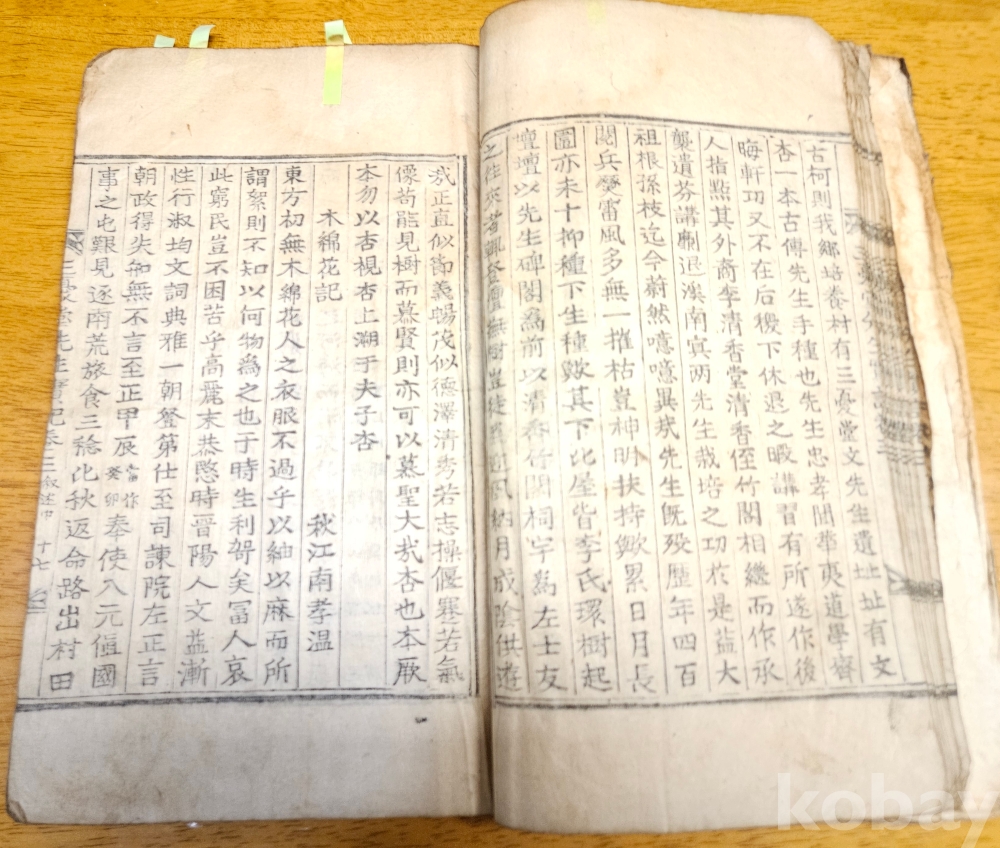 古柯則我鄕培養村有三憂堂文先生遺址址有文
杏一本古傳先生手種也先生忠孝聞華夷道學齊
晦軒功又不在后稷下休退之暇講習有所遂作後
人指點其外裔李淸香堂淸香侄竹閣相繼而作承
襲遺芬講劘退溪南冥兩先生栽培之功於是益大
祖根孫枝迄今蔚然噫噫異哉先生旣歿歷年四百
閱兵燹雷風多無一摧枯豈神明扶持歟累日月長
圍亦未十抑種下生種歟其下比屋皆李氏環樹起
壇壇以先生碑閣爲前以淸香竹閣祠宇爲左士友
之往來者
納月成陰供遊
哉正直似節義暢茂似德澤淸秀若志操偃蹇若氣
像苟能見樹而慕賢則亦可以慕聖大哉杏也本厥
本勿以杏視杏上溯于夫子杏
木綿花記
秋江南孝溫
東方初無木綿花人之衣服不過乎以紬以麻而所
謂絮則不知以何物爲之也于時生利窄矣富人哀
此窮民豈不困苦乎高麗末恭愍時晋陽人文益漸
性行淑均文詞典雅一朝登第仕至司諫院左正言
朝政得失知無不言至正甲辰當作癸卯奉使入元傴國
事之屯艱見逐南荒旅食三稔比秋返命路出村田
三憂堂先生實記卷三 叙述中 十七
kobay